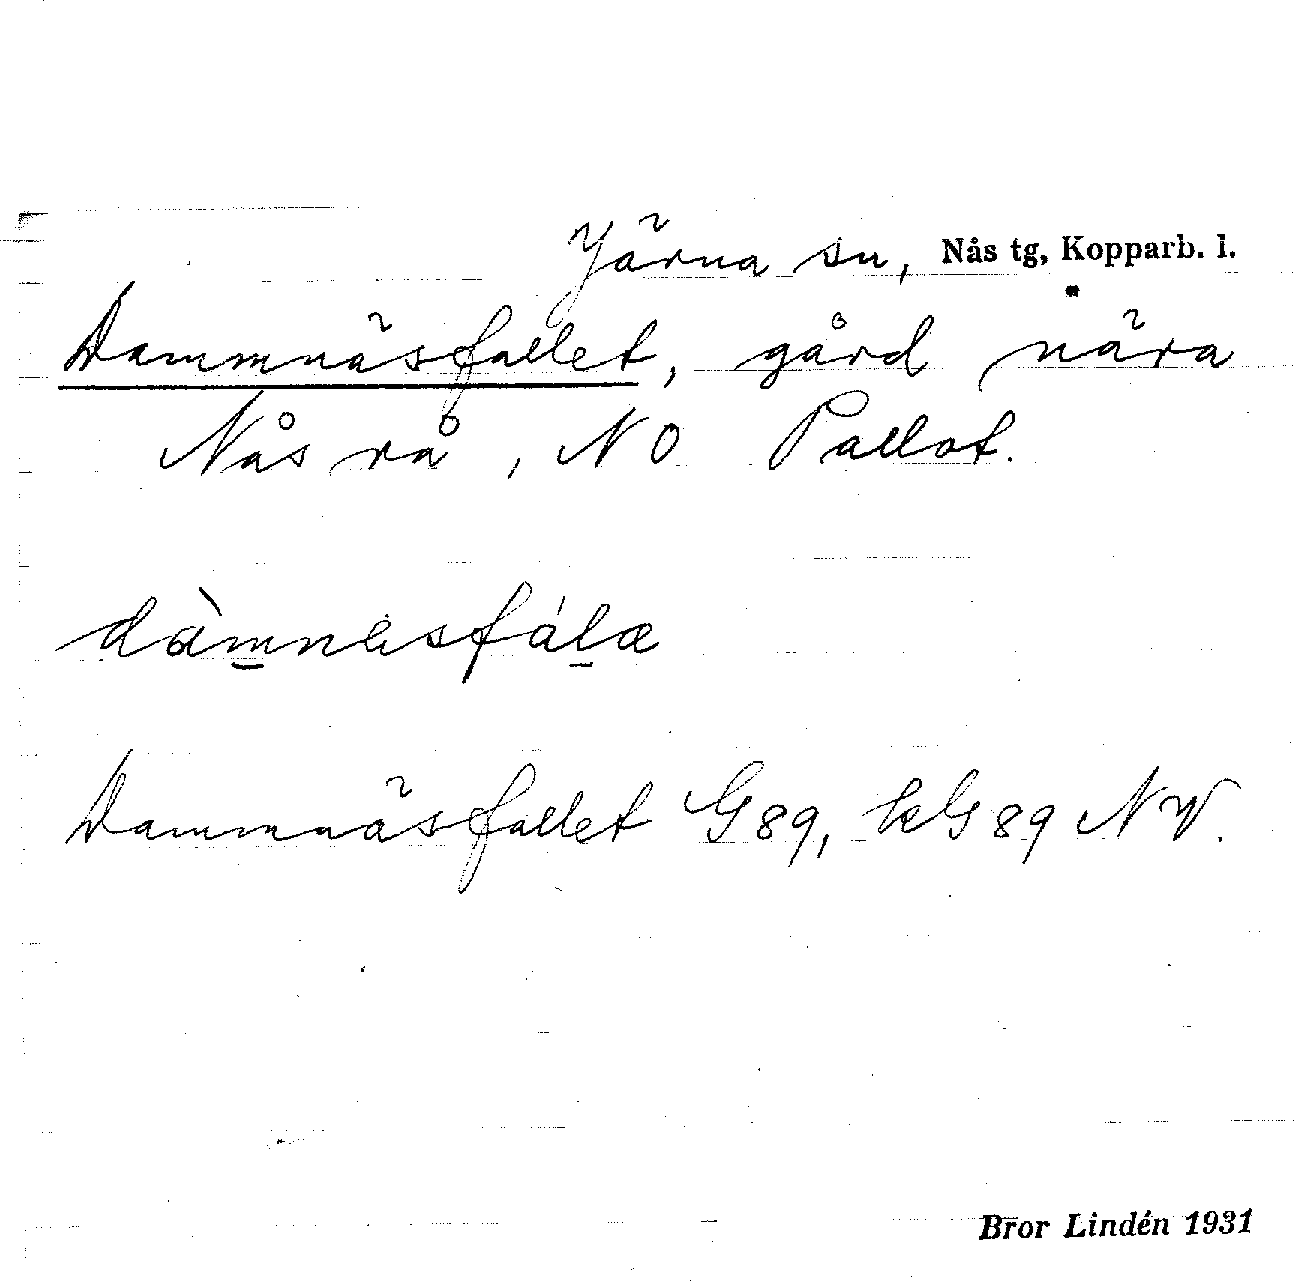 Järna sn, Nås tg, Kopparb. l.
Dammnäsfallet, gård nära
Nås rå, NO Pallot.
dàm̲næsfál̲æ
Dammnäsfallet G89, kG89 NV.
Bror Lindén 1931